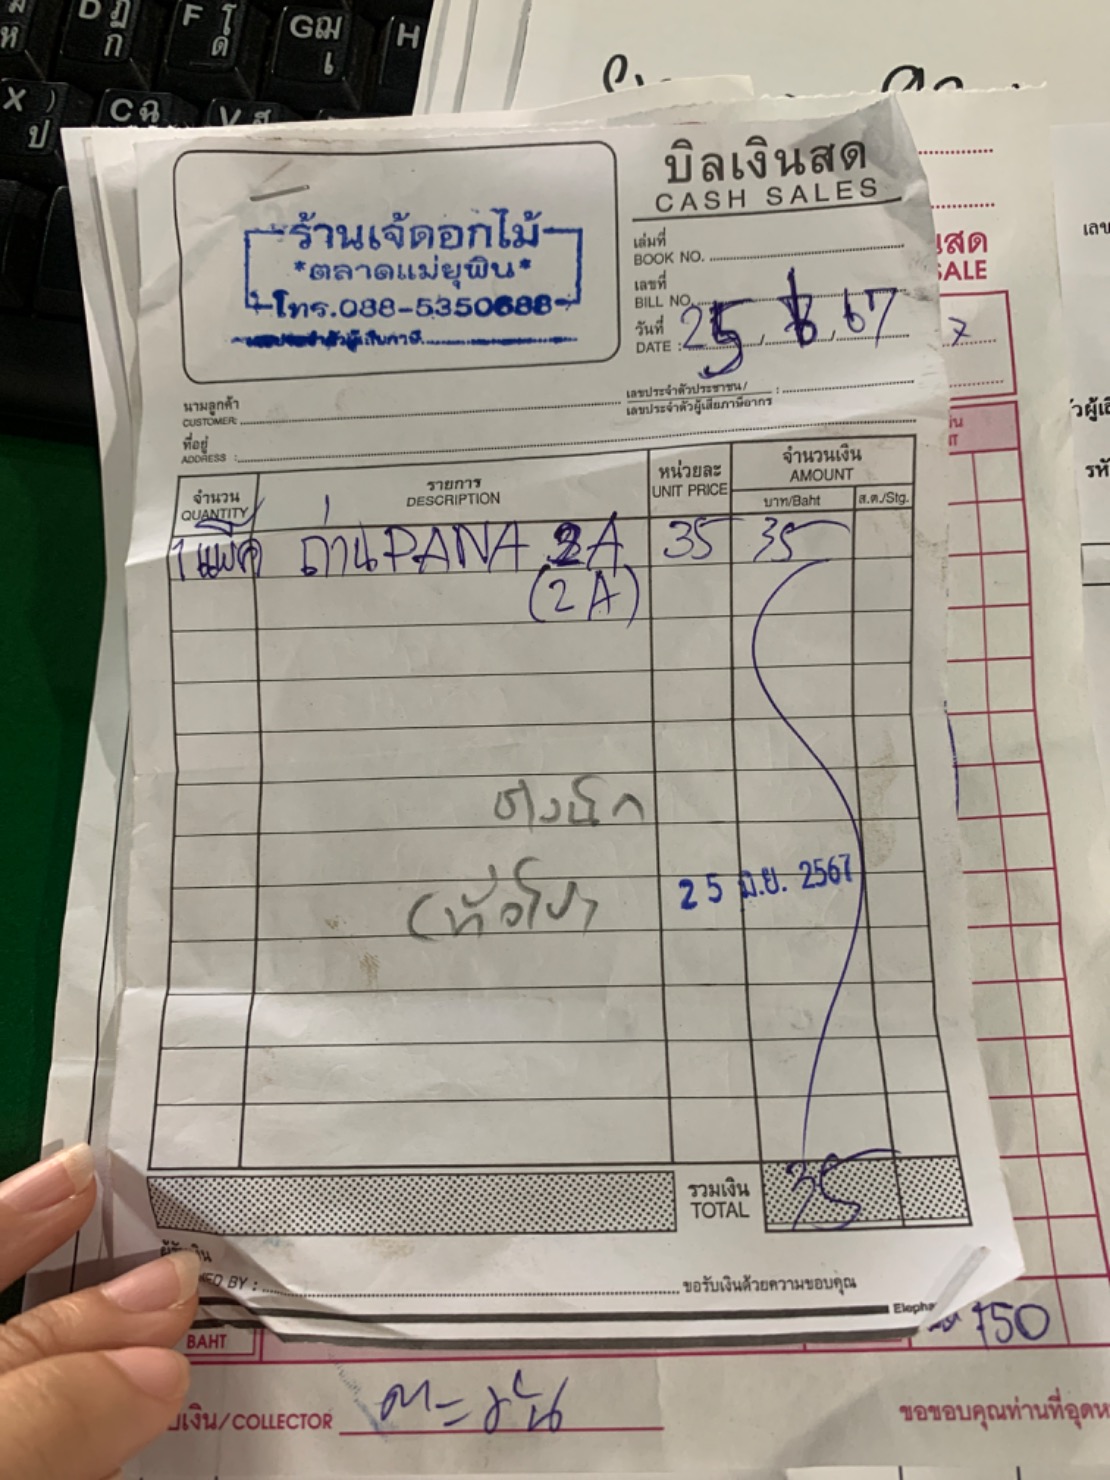 D ฏ ก
F โ ด
G ฌ เ
H
X ) ป
C ฉ
V ส
บิลเงินสด
CASH SALES
ร้านเจ๊ดอกไม้
*ตลาดแม่ยุพิน*
โทร.088-5350688
เล่มที่
BOOK NO.
เลขที่
BILL NO.
วันที่
DATE : 25 / 6 / 67
นามลูกค้า
CUSTOMER:
เลขประจำตัวประชาชน/
เลขประจำตัวผู้เสียภาษีอากร :
ที่อยู่
ADDRESS :
จำนวน
QUANTITY
รายการ
DESCRIPTION
หน่วยละ
UNIT PRICE
จำนวนเงิน
AMOUNT
บาท/Baht
ส.ต./Stg.
1 แพ็ค ถ่าน PANA 2A 35 35
(2A)
(ทั่วไป)
25 มิ.ย. 2567
รวมเงิน
TOTAL
35
BY :
ขอรับเงินด้วยความขอบคุณ
Elepha
สด
SALE
BAHT
750
เงิน/COLLECTOR
ขอขอบคุณท่านที่อุดห
เลข
รหั